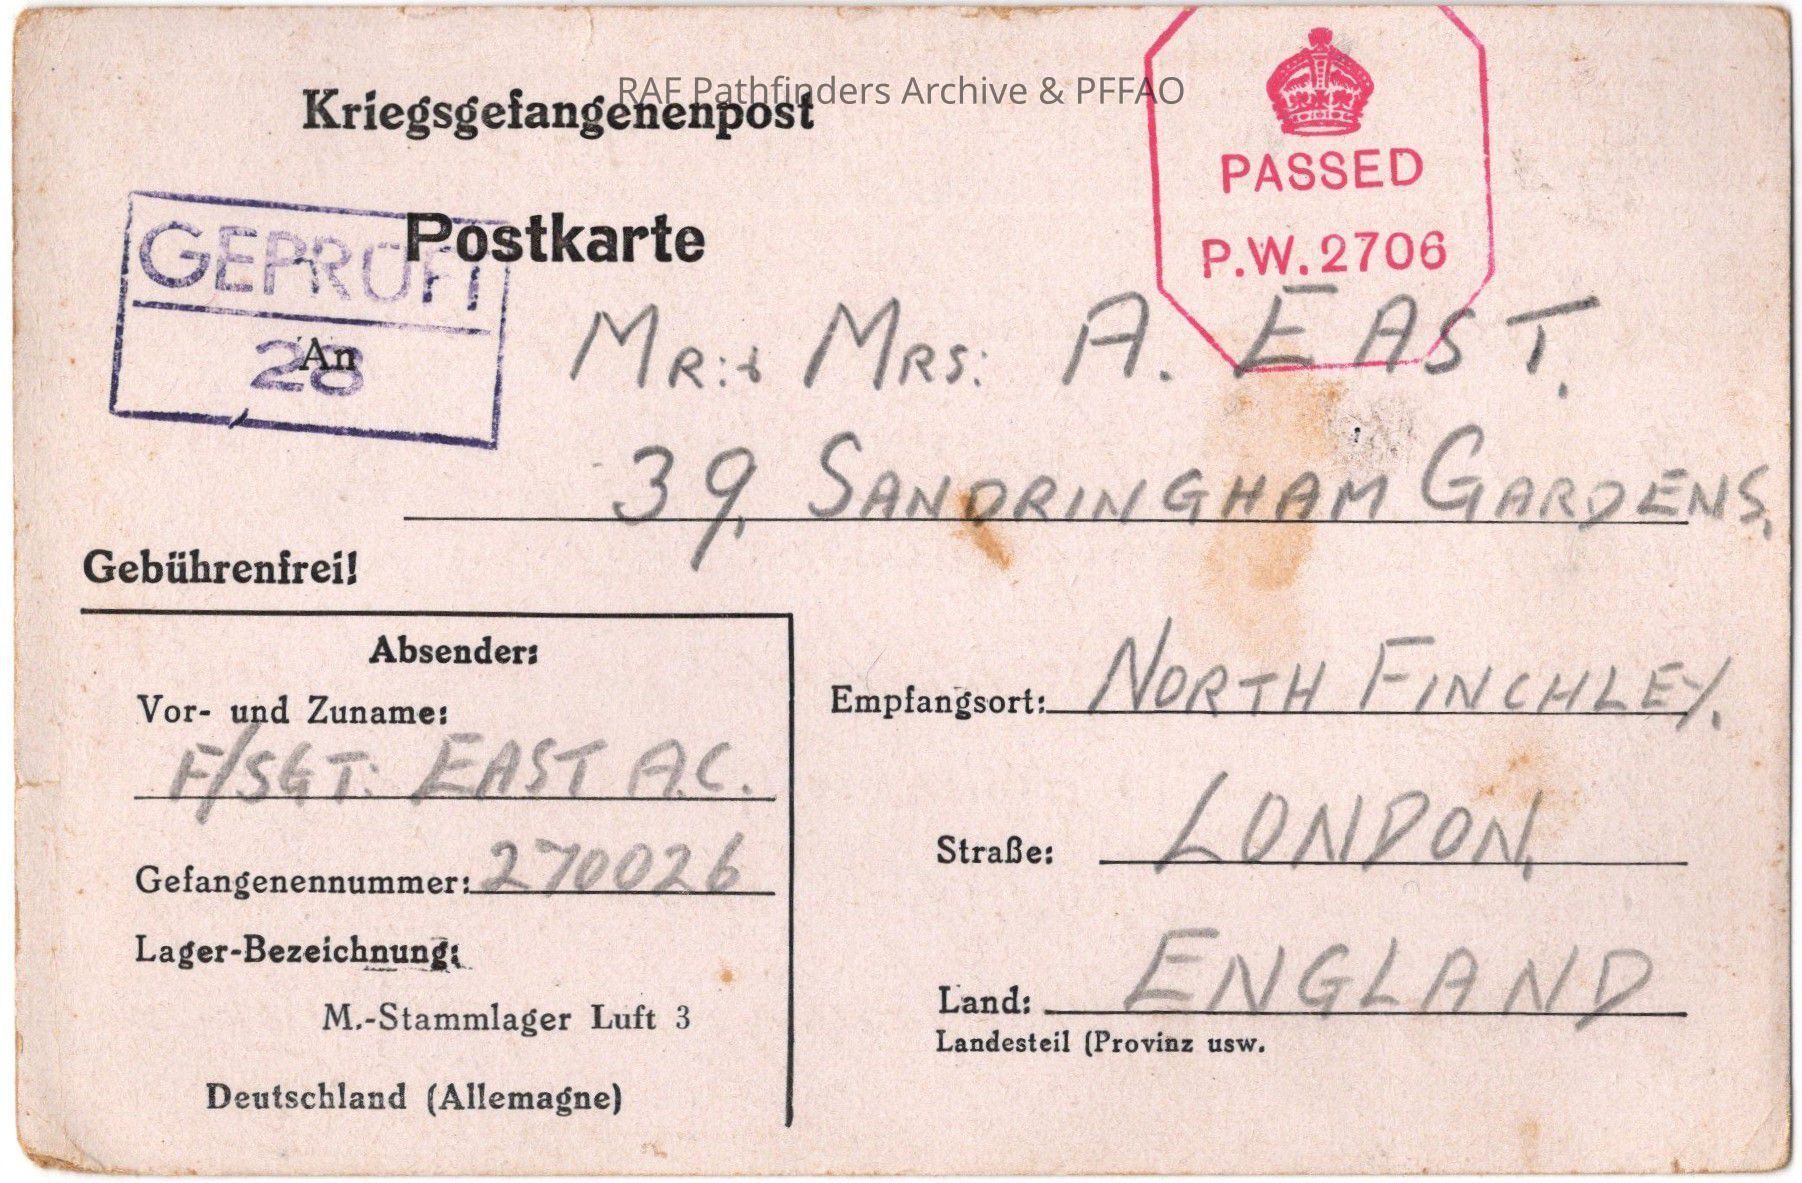 RAF Pathfinders Archive & PFFAO
Kriegsgefangenenpost
PASSED
P.W. 2706
Postkarte
GEPRÜFT
28
An
MR: & MRS: A. EAST.
39, SANDRINGHAM GARDENS.
Gebührenfrei!
Absender:
Vor- und Zuname:
F/SGT. EAST A.C.
Gefangenennummer: 270026
Lager-Bezeichnung:
M.-Stammlager Luft 3
Deutschland (Allemagne)
Empfangsort: NORTH FINCHLEY.
Straße: LONDON.
Land: ENGLAND
Landesteil (Provinz usw.